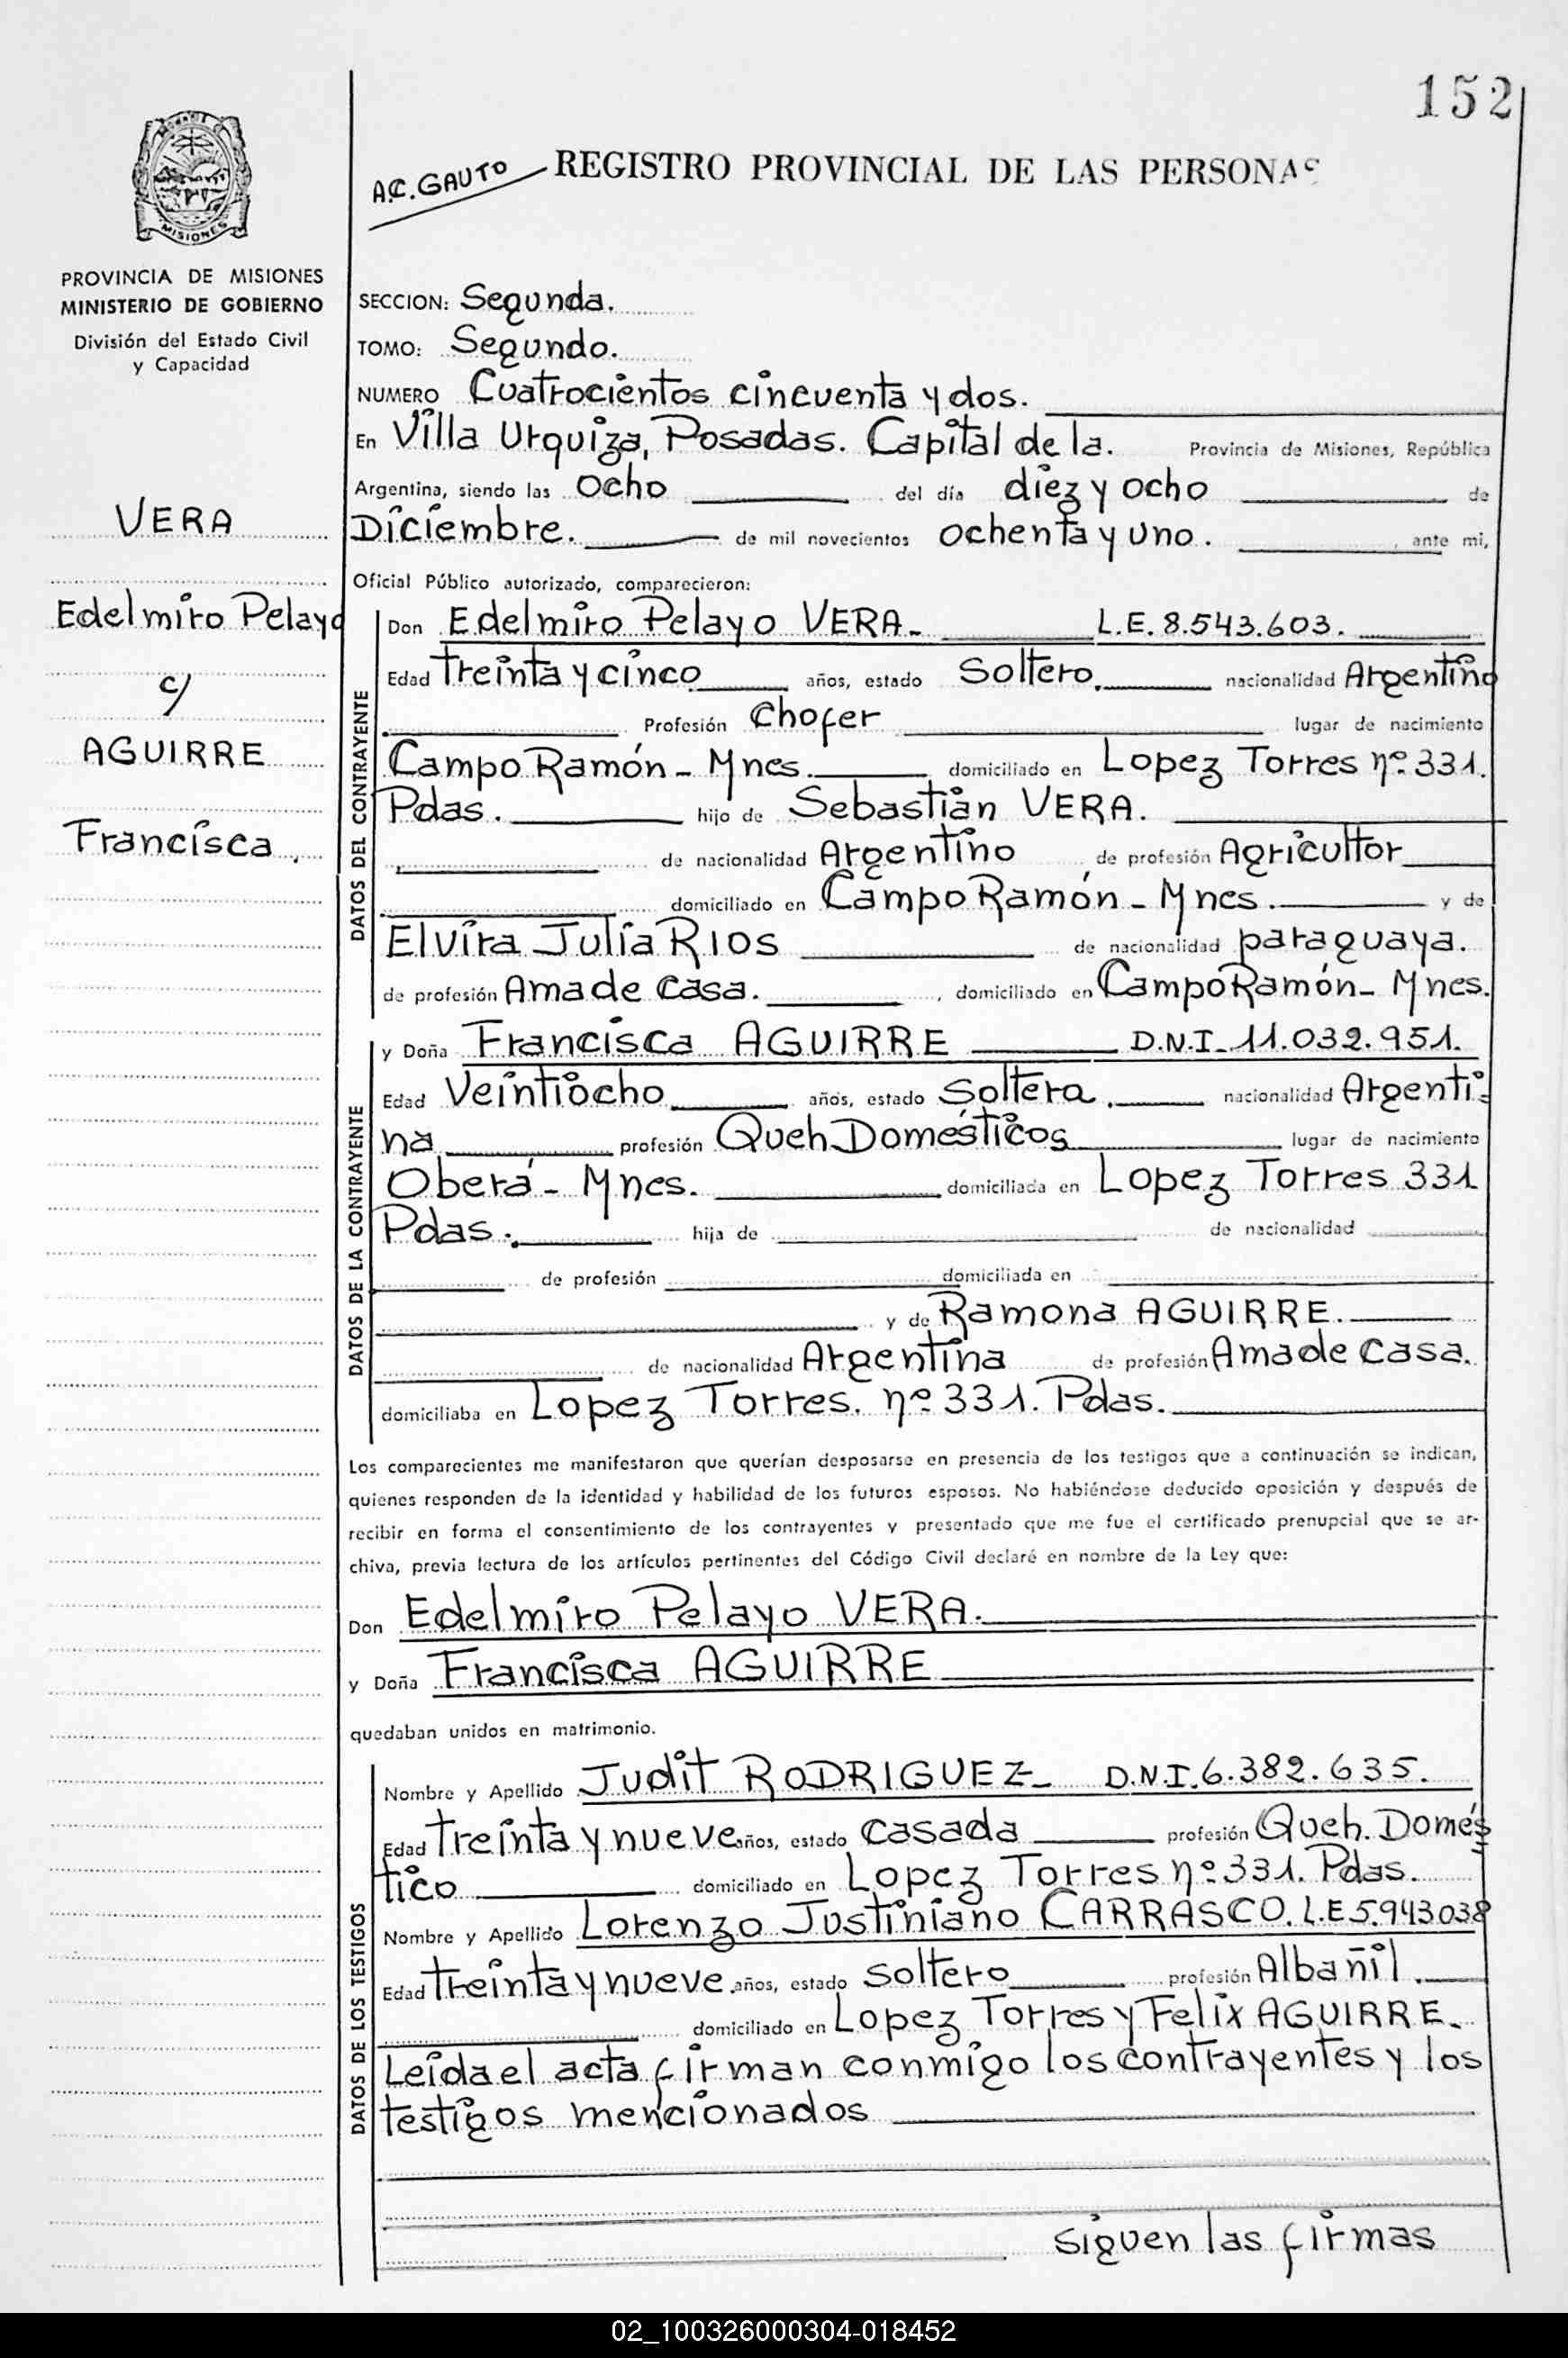 152
A.C. GAUTO
REGISTRO PROVINCIAL DE LAS PERSONAS
MISIONES
PROVINCIA DE MISIONES
MINISTERIO DE GOBIERNO
División del Estado Civil
y Capacidad
VERA
Edelmiro Pelayo
c/
AGUIRRE
Francisca.
SECCION: Segunda.
TOMO: Segundo.
NUMERO Cuatrocientos cincuenta y dos.
En Villa Urquiza, Posadas. Capital de la. Provincia de Misiones, República
Argentina, siendo las Ocho del día diez y ocho de
Diciembre. de mil novecientos ochenta y uno. , ante mi,
Oficial Público autorizado, comparecieron:
DATOS DEL CONTRAYENTE
Don Edelmiro Pelayo VERA- L.E. 8.543.603.
Edad treinta y cinco años, estado Soltero. nacionalidad Argentino
, Profesión Chofer lugar de nacimiento
Campo Ramón - Mnes. domiciliado en Lopez Torres nº 331.
Pdas. hijo de Sebastián VERA.
de nacionalidad Argentino de profesión Agricultor
domiciliado en Campo Ramón - Mnes. y de
Elvira Julia RIOS de nacionalidad paraguaya.
de profesión Ama de Casa. , domiciliado en Campo Ramón - Mnes.
DATOS DE LA CONTRAYENTE
y Doña Francisca AGUIRRE D.N.I. 11.032.951.
Edad Veintiocho años, estado Soltera. nacionalidad Argenti-
na profesión Queh Domésticos lugar de nacimiento
Oberá - Mnes. domiciliada en Lopez Torres 331
Pdas. hija de de nacionalidad
de profesión domiciliada en
y de Ramona AGUIRRE.
de nacionalidad Argentina de profesión Ama de Casa.
domiciliaba en Lopez Torres. nº 331. Pdas.
Los comparecientes me manifestaron que querían desposarse en presencia de los testigos que a continuación se indican,
quienes responden de la identidad y habilidad de los futuros esposos. No habiéndose deducido oposición y después de
recibir en forma el consentimiento de los contrayentes y presentado que me fue el certificado prenupcial que se ar-
chiva, previa lectura de los artículos pertinentes del Código Civil declaré en nombre de la Ley que:
Don Edelmiro Pelayo VERA.
y Doña Francisca AGUIRRE
quedaban unidos en matrimonio.
DATOS DE LOS TESTIGOS
Nombre y Apellido Judit RODRIGUEZ- D.N.I. 6.382.635.
Edad treinta y nueve años, estado casada profesión Queh. Domés
tico domiciliado en Lopez Torres nº 331. Pdas.
Nombre y Apellido Lorenzo Justiniano CARRASCO. L.E 5.943.038
Edad treinta y nueve años, estado soltero profesión Albañil.
domiciliado en Lopez Torres y Felix AGUIRRE.
Leída el acta firman conmigo los contrayentes y los
testigos mencionados
Siguen las firmas
02_100326000304-018452